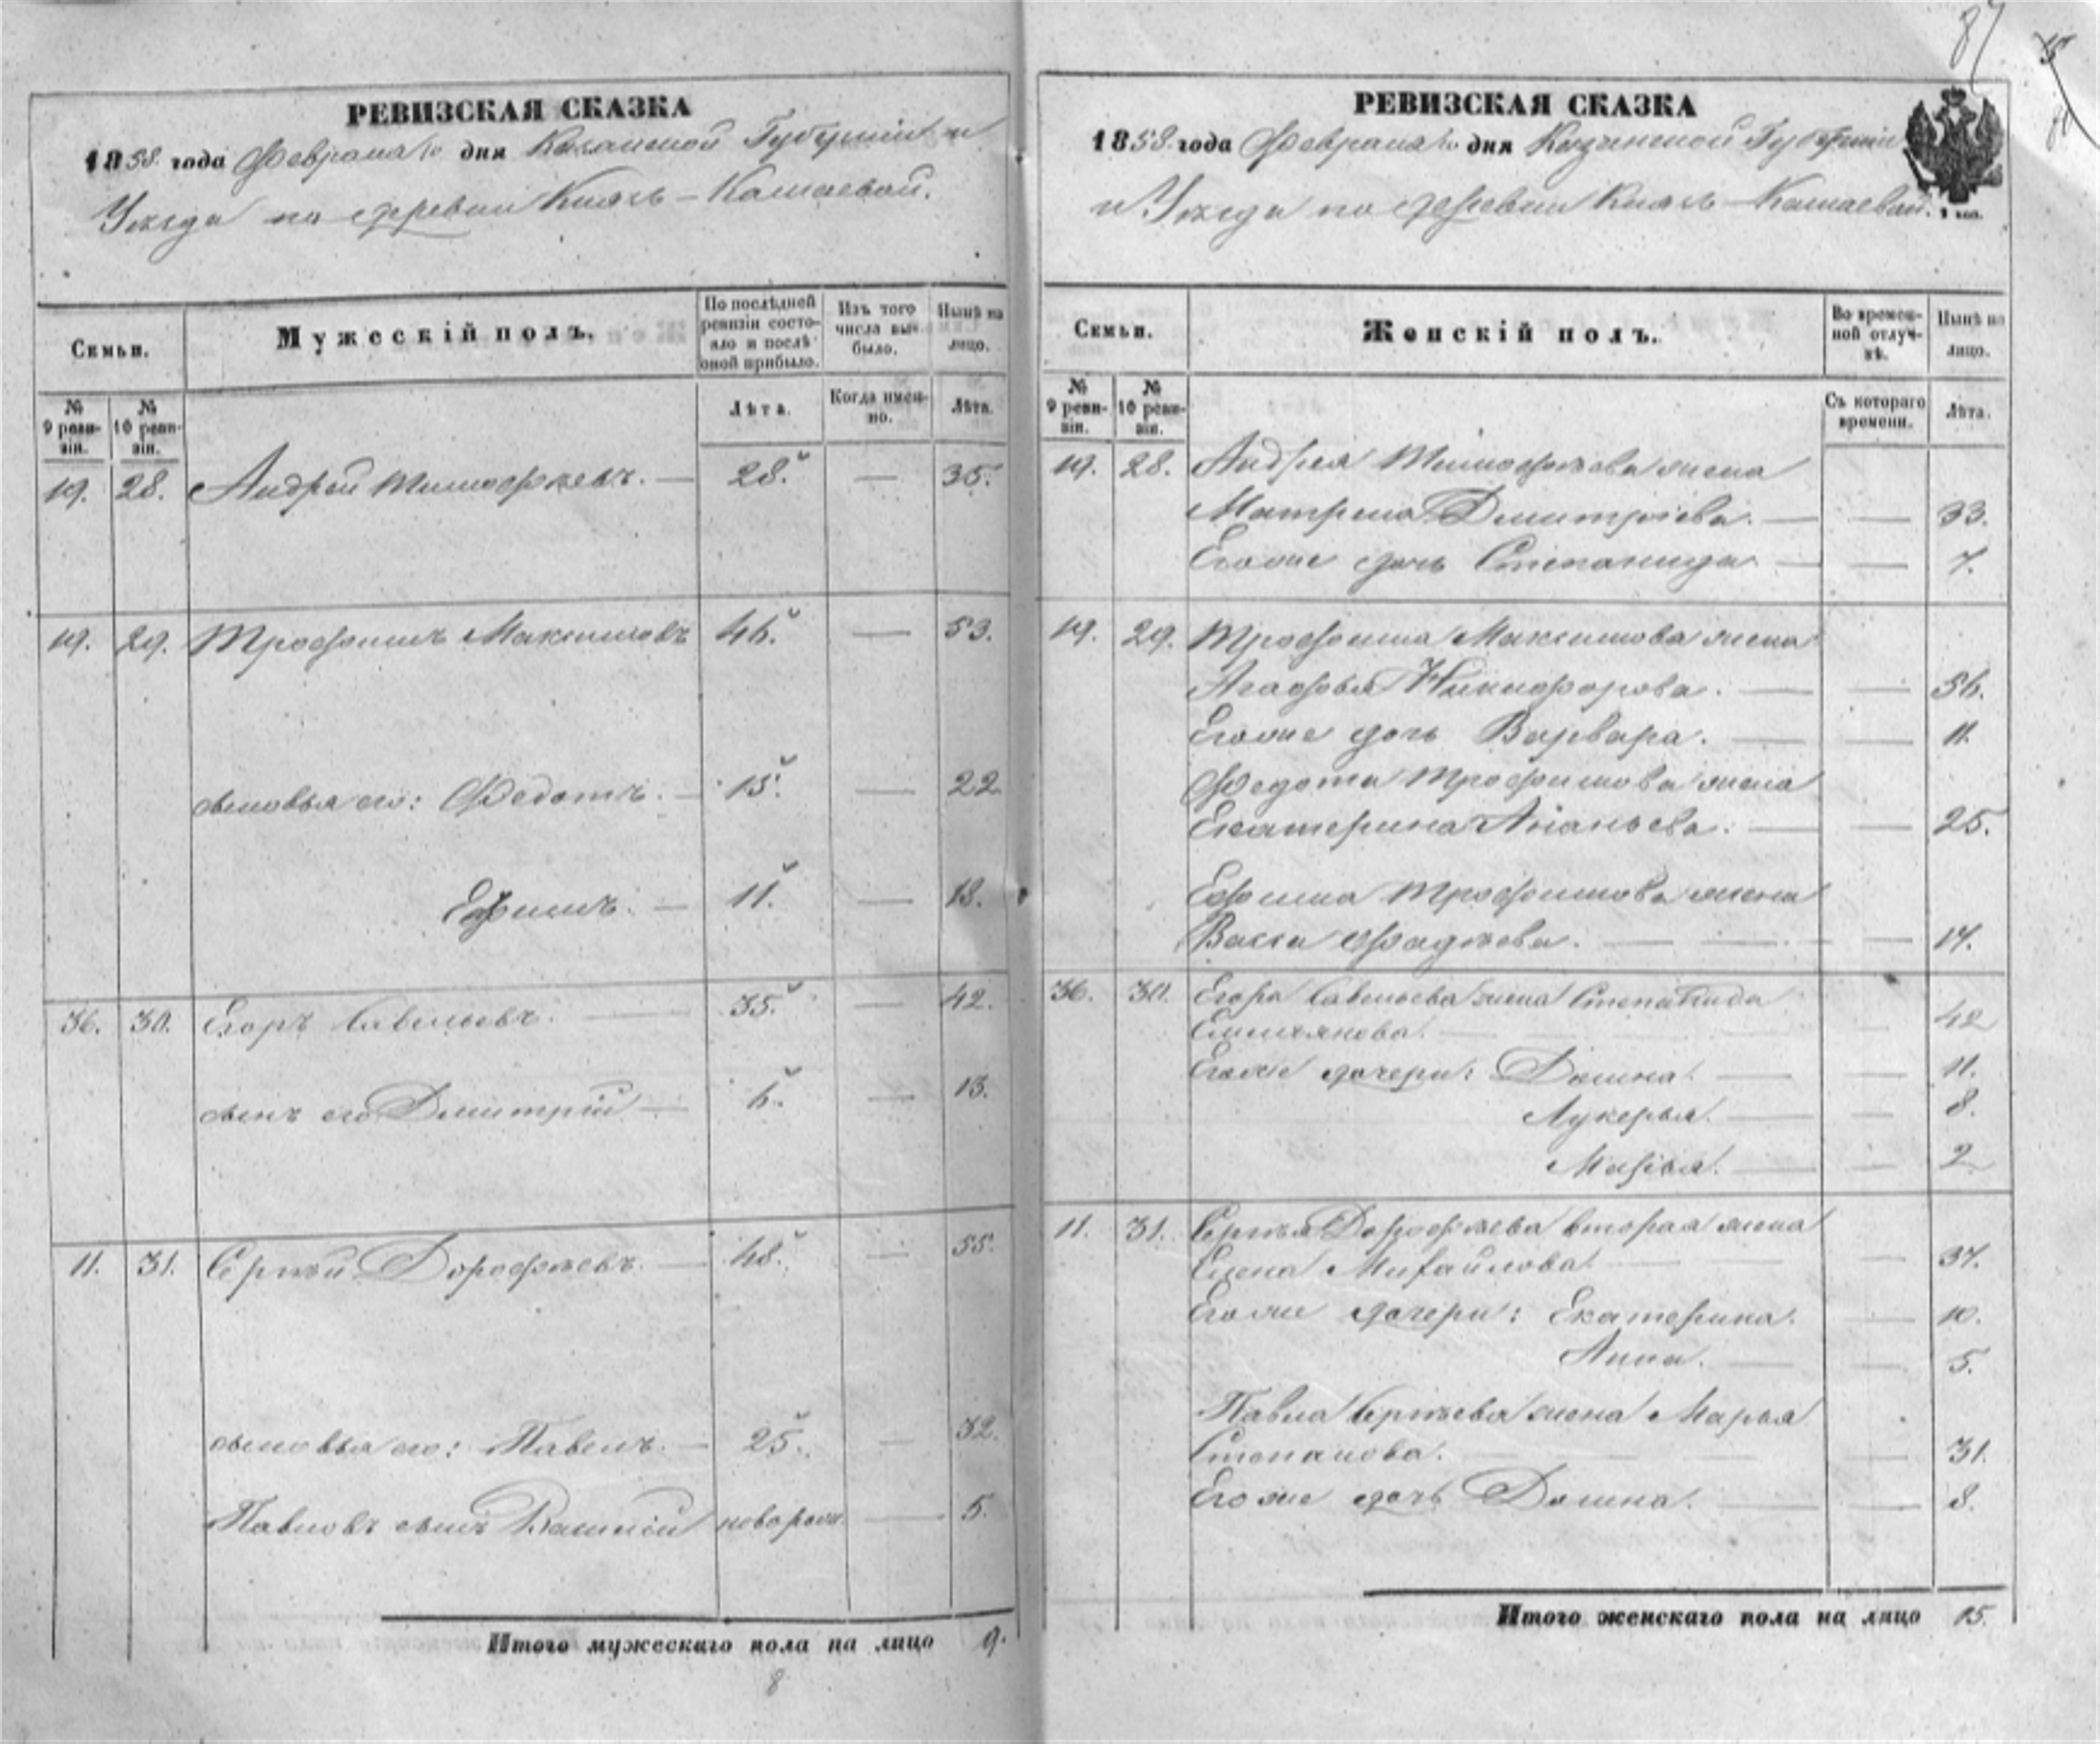 87
РЕВИЗСКАЯ СКАЗКА
1858 года Февраля 10 дня Казанской Губерніи и
Уѣзда по деревни Князь-Камаевой.
Семьи.
Мужескій полъ.
По послѣдней ревизіи состояло и послѣ оной прибыло.
Изъ того числа выбыло.
Нынѣ на лицо.
№ 9 ревизіи.
№ 10 ревизіи.
Лѣта.
Когда именно.
Лѣта.
19. 28. Андрей Тимофѣевъ. — 28. — 35.
19. 29. Трофимъ Максимовъ 46. — 53.
сыновья его: Федотъ. — 15. — 22
Ефимъ. — 11. — 18.
36. 30. Егоръ Савельевъ. — 35. — 42.
сынъ его Дмитрій — 6. — 13.
11. 31. Сергѣй Дорофѣевъ. — 48. — 55.
сыновья его: Павелъ. — 25. — 32.
Павловъ сынъ новорож. — 5.
Итого мужескаго пола на лицо 9.
8
РЕВИЗСКАЯ СКАЗКА
1858 года Февраля 10 дня Казанской Губерніи
и Уѣзда по деревни Князь-Камаевой.
Семьи.
Женскій полъ.
Во временной отлучкѣ.
Нынѣ на лицо.
№ 9 ревизіи.
№ 10 ревизіи.
Съ котораго времени.
Лѣта.
19. 28. Андрея Тимофѣева жена
Матрена Дмитріева. — — 33.
Его же дочь Степанида — — 7.
19. 29. Трофима Максимова жена
Агафья Никифорова. — — 56.
Его же дочь Варвара. — — 11.
Федота Трофимова жена
Екатерина Ананьева. — — 25.
Ефима Трофимова жена
Васса Фадѣева. — — 17.
36. 30. Егора Савельева жена Степанида
Емельянова. — — 42
Его же дочери: Домна. — — 11.
Лукерья. — — 8.
Марья. — — 2
11. 31. Сергѣя Дорофѣева вторая жена
Елена Михайлова. — — 37.
Его же дочери: Екатерина. — 10.
Анна. — — 5.
Павла Сергѣева жена Марья
Степанова. — — 31.
Его же дочь Домна. — — 8.
Итого женскаго пола на лицо 15.